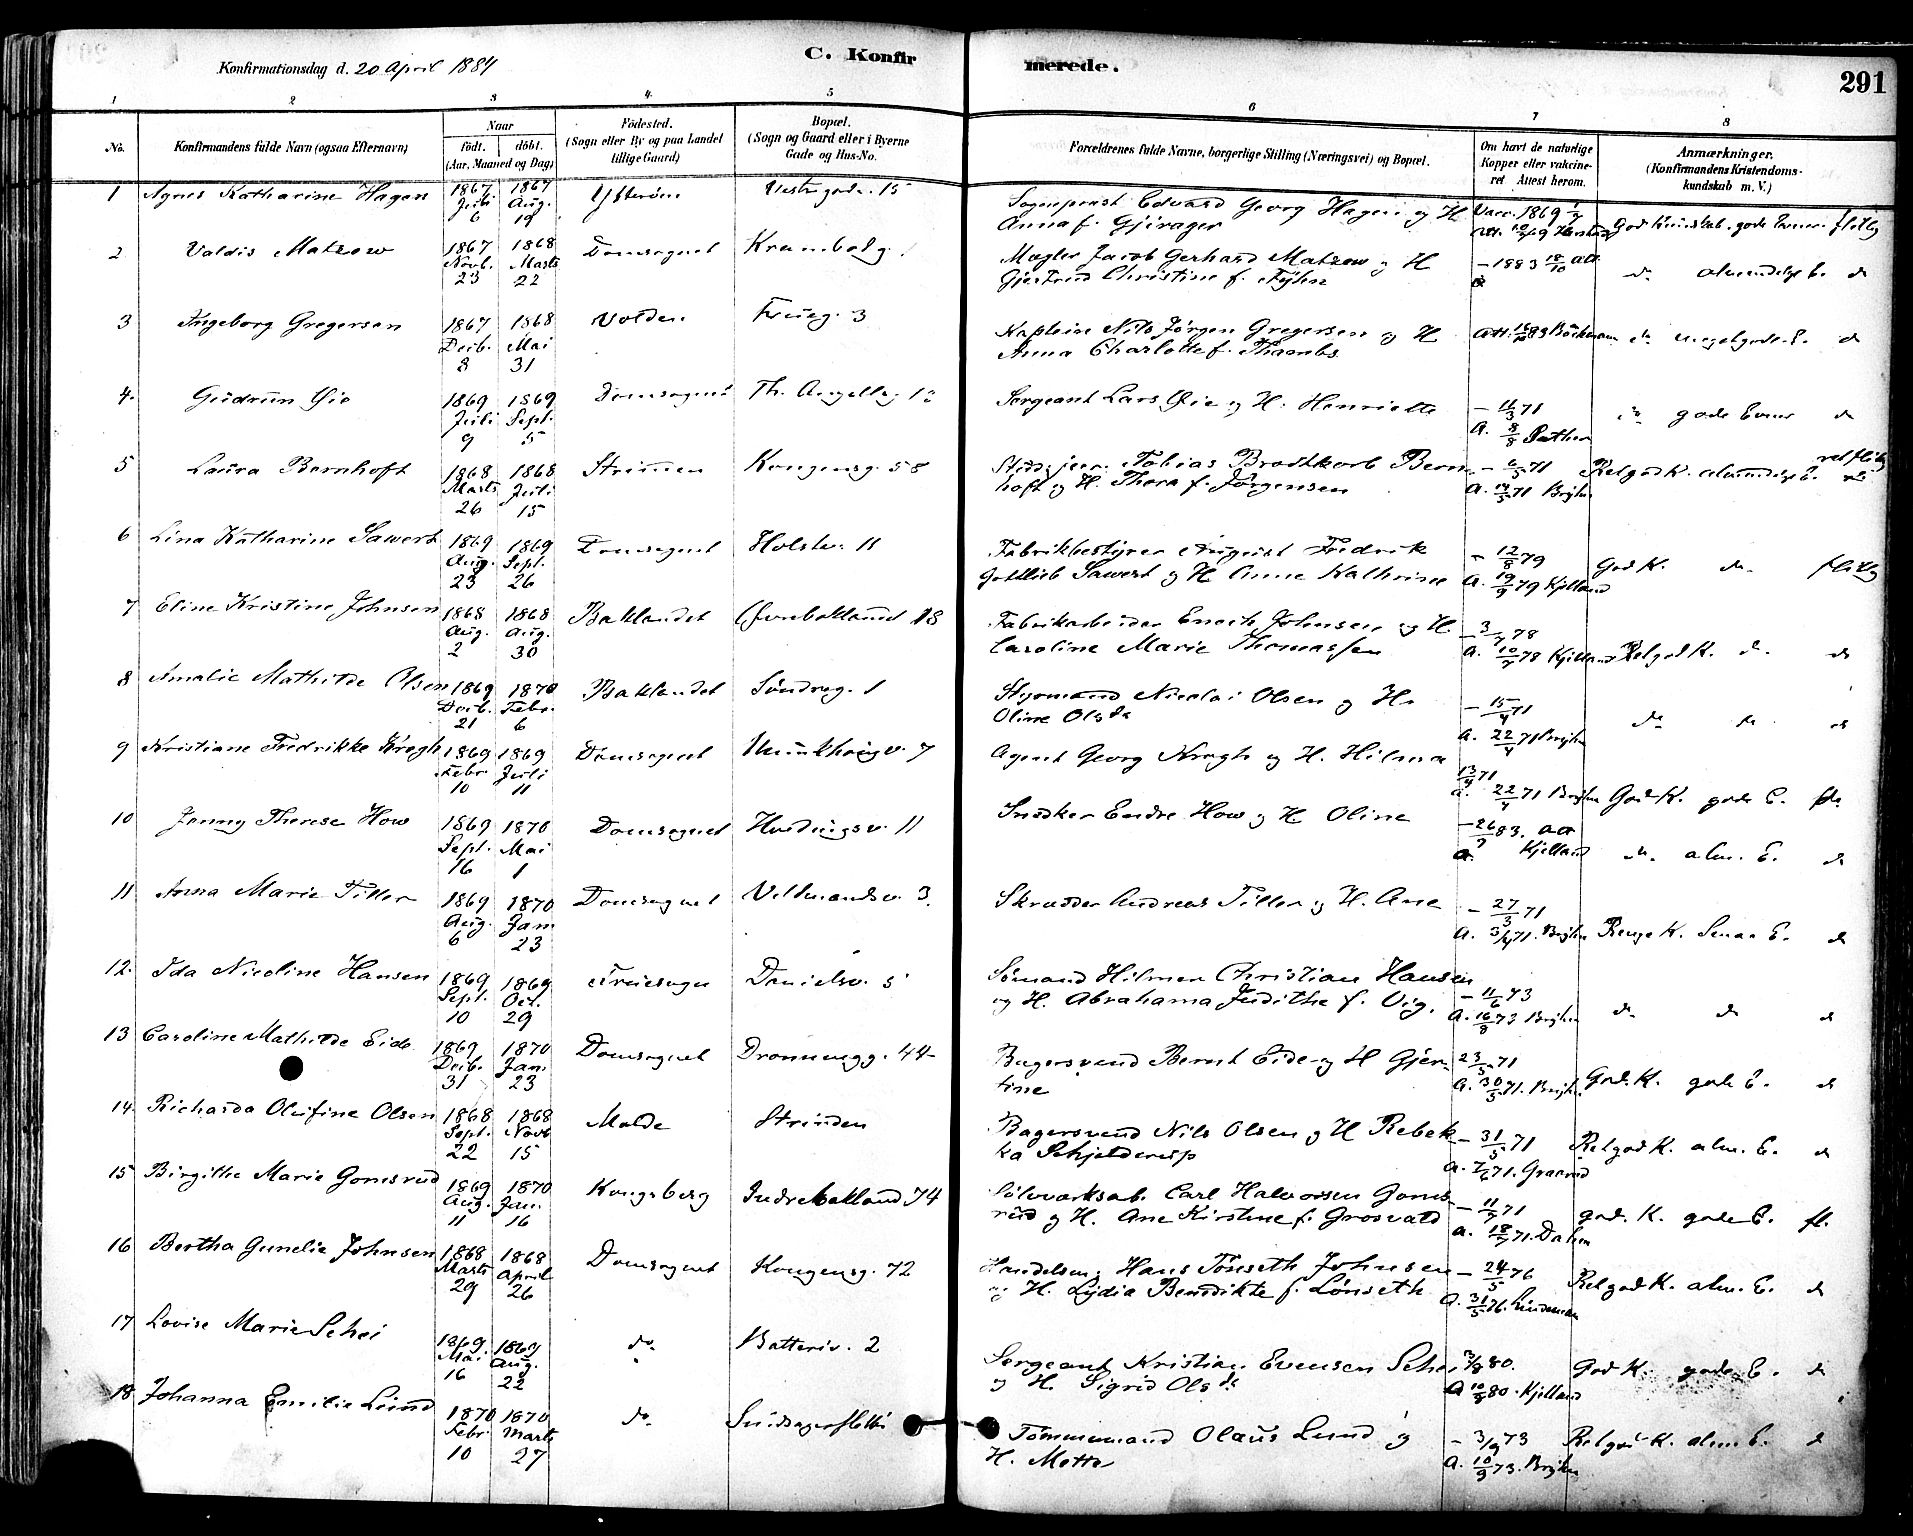 Konfirmationsdag d. 20 April 1884
C. Konfirmerede.
291
1 2 3 4. 5 6 7 8
No. Konfirmandens fulde Navn (ogsaa Efternavn) Naar födt. döbt. (Aar, Maaned og Dag) Födested. (Sogn eller By og paa Landet tillige Gaard) Bopæl. (Sogn og Gaard eller i Byerne Gade og Hus-No.
Forældrenes fulde Navne, borgerlige Stilling (Næringsvei) og Bopæl. Om havt de naturlige Kopper eller vakcineret Attest herom. Anmærkninger. (Konfirmandens Kristendomskundskab m. V.)
1 Agnes Katharine Hagen 1867 Juli 6 1867 Aug. 19 Ytterøen 15
Sogneprest Edvard Georg Hagen og H. Anna f. Gjæver Vacc. 1869 God Kundskab. gode Evner. flittig
2 Valdis Matzow 1867 Novb. 23 1868 Marts 22 Domsognet Krambodg.
Mægler Jacob Gerhard Matzow og H Gjertrud Christine f. - 1883 18/10 do almindelige E. do
3 Ingeborg Gregersen 1867 Decb. 8 1868 Mai 31 Volden Frueg. 3
Kaptein Nils Jörgen Gregersen og H Anna Charlotte f. do meget gode E. do
4. Gudrun Øie 1869 Juli 9 1869 Sept. 5 Domsognet Th. Angellsg. 12
Sergeant Lars Øie og H. Henriette - 11/3 71 do gode Evner do
5 Laura Bernhoft 1868 Marts 26 1868 Juli 15 Strinden Kongensg. 58
Tobias Brodtkorb Bernhoft og H. Thora f. Jörgensen 71 Brijhn Relgod K. almindelige E. ret flittig
6 Lina Katharine Sawert 1869 Aug. 23 1869 Sept. 26 Domsognet Holstv. 11
Fabrikbestyrer August Fredrik Gottlieb Sawert og H Anne Kathrine - 12/8 79 A. 19/9 79 Kjelland God K. do. flittig
7 Eline Kristine Johnsen 1868 Aug. 2 1868 Aug. 30 Baklandet Øvrebakland 18
Fabrikarbeider Enoch Johnsen og H. Caroline Marie Thomassen 78 A. 78 Kjelland Relgod K. do. do
8 Amalie Mathilde Olsen 1869 Decb. 21 1870 Febr. 6 Baklandet Söndreg. 1
Styrmand Nicolai Olsen og H. Oline Olsdr - 15/4 71 A. 22/4 71 Brijhn do do do
9 Kristiane Fredrikke Krogh 1869 Febr 10 1869 Juli 11 Domsognet Munkhaugv. 7
Agent Georg Krogh og H. Hilma 13/4 71 A. 22/4 71 Brijhn God K. gode E. do
10 Jenny Therese How 1869 Sept. 16 1870 Mai 1 Domsognet Hvedingsv. 11
Snedker Endre How og H Oline 83. Kjelland do. alm. E. do
11 Anna Marie Tiller 1869 Aug. 6 1870 Jan 23 Domsognet Vildmandsv. 3.
Skrædder Andreas Tiller og H. Ane - 27/3 71 A. 71. Brijhn Ringe K. Smaa E. do
12. Ida Nicoline Hansen 1869 Sept. 10 1869 Oct. 29 Fruesogn Danielsv. 5
Sömand Hilmer Christian Hansen og H. Abrahama Judithe f. Vig. - 11/6 73 A. 16/8 73 Brijhn do do do
13 Caroline Mathilde Eide 1869 Decb. 31 1870 Jan. 23 Domsognet Dronningg. 44
Bagersvend Bernt Eide og H Gjertine 23/5 71 A. 30/5 71. Brijhn God. K. gode E. do
14. Richarda Olufine Olsen 1868 Sept. 22 1868 Novb 15 Molde Strinden
Bagersvend Nils Olsen og H Rebekka Schjelderup - 31/5 71 A. 7/6 71. Relgod K. alm. E. do
15 Birgithe Marie Gomsrud 1869 Aug. 11 1870 Jan. 16 Kongsberg Indrebakland 74
Sölvværksab. Carl Halvorsen Gomsrud og H. Ane Kirstine f. Grosvald - 11/7 71 A. 18/7 71. god. K. gode E. fl.
16 Bertha Gunelie Johnsen 1868 Marts 29 1868 April 26 Domsognet Kongensg. 72
Handelsm. Hans Tönseth Johnsen og H. Lydia Benedikte f. Lönseth - 24/5 76 A. 31/5 76. Lindeman Relgod K. alm. E. do
17 Lovise Marie Schei 1869. Mai 16 1869 Aug. 22 do. Batteriv. 2
Sergeant Kristian Evensen Schei og H. Sigrid Olsdr 80. A 80. Kjelland God K. gode E. do
18 Johanna Emilie Lund 1870 Febr 10 1870 Marts 27 do.
Tömmermand Olaus Lund og H. Mette - 3/9 73 A. 10/9 73. Brijhn Relgod K. alm E. do